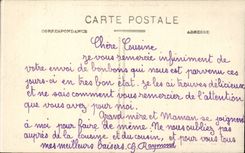 CARTE POSTALE
CORRESPONDANCE
ADRESSE
Chère Cousine
Je vous remercie infiniment de
votre envoi de bonbons qui nous est parvenu ces
jours-ci en très bon état. Je les ai trouvés délicieux
et ne sais comment vous remercier de l'attention
que vous avez pour moi.
Grand-mère et Maman se joignent
à moi pour faire de même. Ne nous oubliez pas
auprès de la cousine et du cousin et pour vous tous
mes meilleurs baisers. Raymond